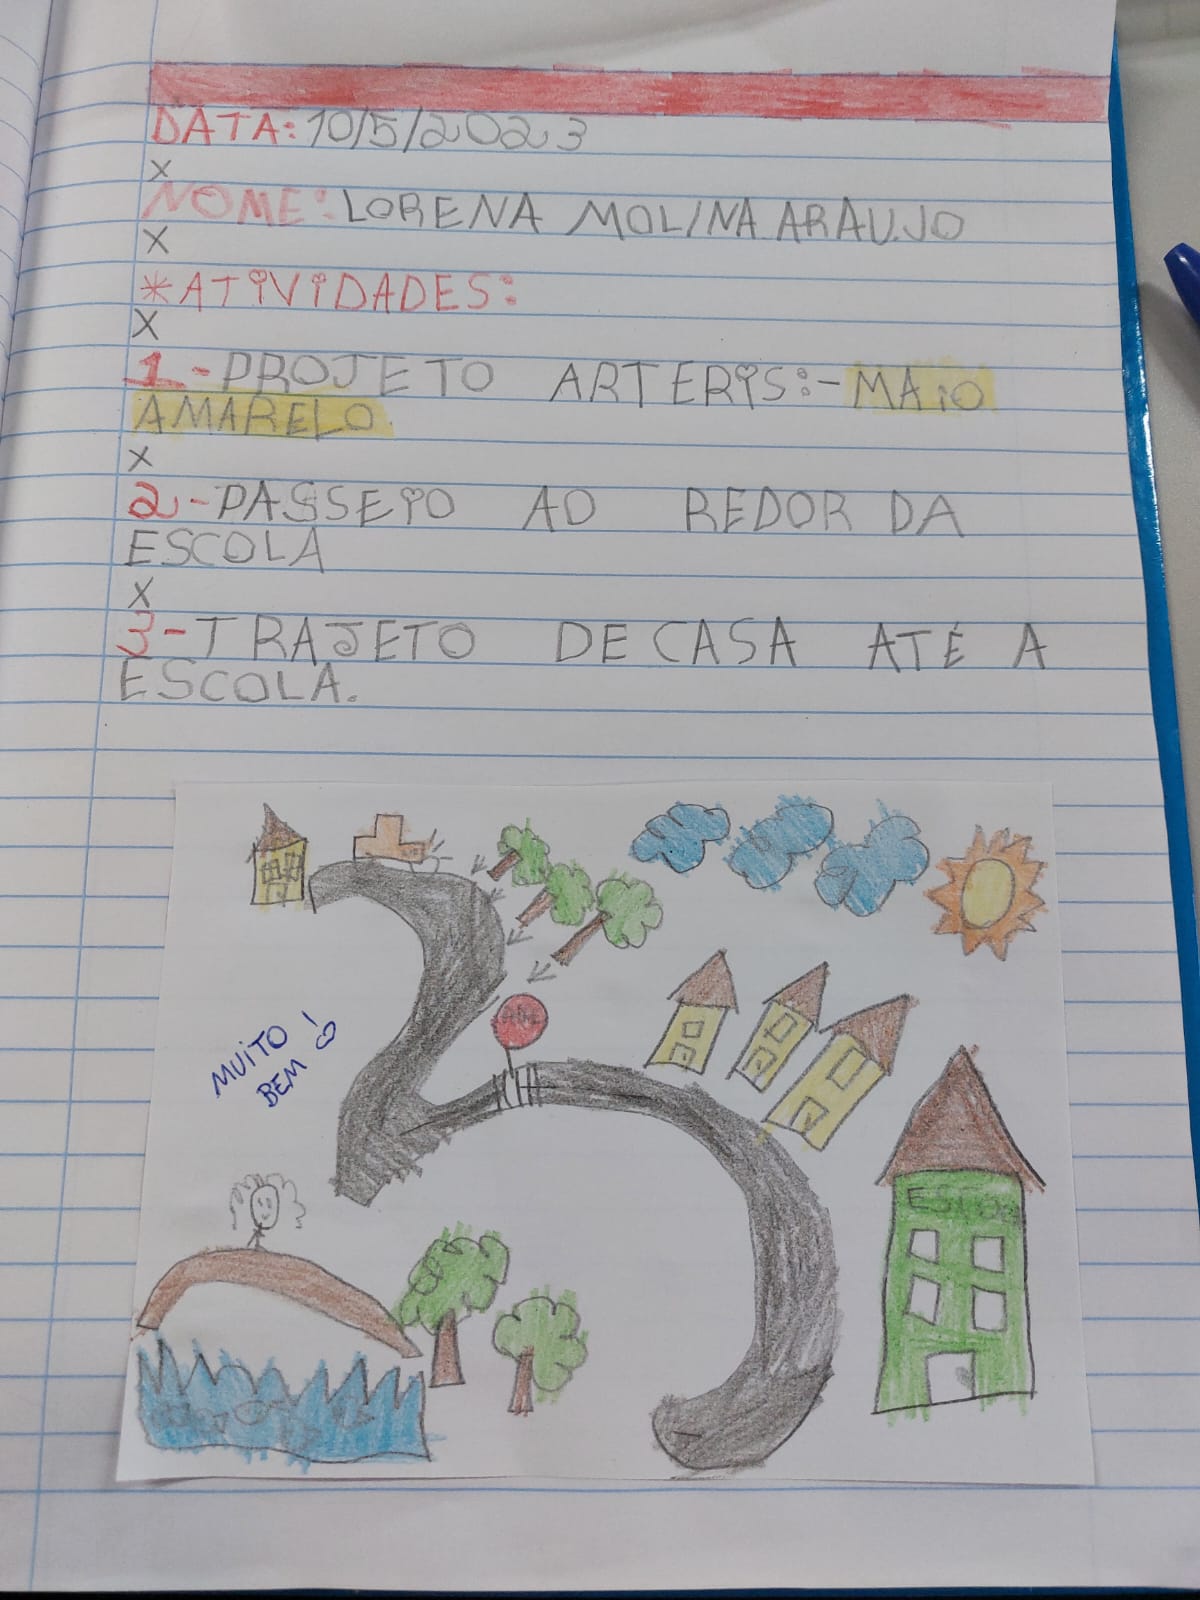 DATA: 10/5/2023
X
NOME: LORENA MOLINA ARAUJO
X
*ATIVIDADES:
X
1-PROJETO ARTERIS:-MAIO
AMARELO
X
2-PASSEIO AO REDOR DA
ESCOLA
X
3-TRAJETO DE CASA ATÉ A
ESCOLA.
MUITO
BEM!